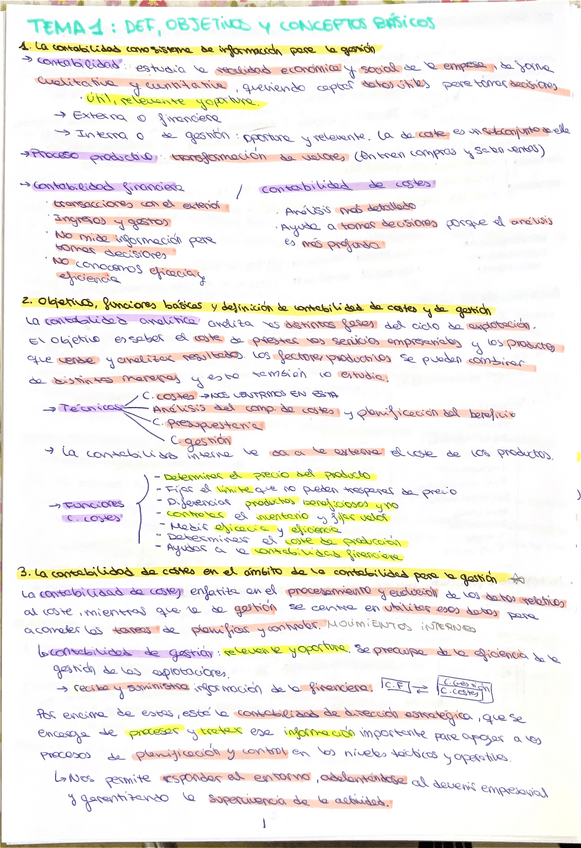 TEMA 1: DEF, OBJETIVOS Y CONCEPTOS BÁSICOS
1. La contabilidad como sistema de información para la gestión
→ Contabilidad: estudia la realidad económica y social de la empresa, de forma
cualitativa y cuantitativa, queriendo captar datos útiles para tomar decisiones
· Útil, relevante y oportuna.
→ Externa o financiera
→ Interna o de gestión: oportuna y relevante. La de coste es un subconjunto de ella
→ Proceso productivo: transformación de valores (entran compras y salen ventas)
→ Contabilidad financiera / contabilidad de costes
· transacciones con el exterior
· Ingresos y gastos
· No mide información para
tomar decisiones
· No conocemos eficacia y
eficiencia
· Análisis más detallado
· Ayuda a tomar decisiones porque el análisis
es más profundo
2. Objetivos, funciones básicas y definición de contabilidad de costes y de gestión
La contabilidad analítica analiza las distintas fases del ciclo de explotación.
El objetivo es saber el coste de prestar los servicios empresariales y los productos
que vende y analizar resultados. Los factores productivos se pueden combinar
de distintas maneras y esto también lo estudia.
→ Técnicas
C. costes → NOS CENTRAMOS EN ESTA
Análisis del comp. de costes y planificación del beneficio
C. presupuestaria
C. gestión
→ La contabilidad interna le da a la externa el coste de los productos.
→ Funciones
C. costes
- Determinar el precio del producto
- Fijar el límite que no pueden traspasar de precio
- Diferenciar productos beneficiosos y no
- Controlar el inventario y fijar valor
- Medir eficacia y eficiencia
- Determinar el coste de producción
- Ayudar a la contabilidad financiera
3. La contabilidad de costes en el ámbito de la contabilidad para la gestión ☆
La contabilidad de costes enfatiza en el procesamiento y evolución de los datos relativos
al coste, mientras que la de gestión se centra en utilizar esos datos para
acometer las tareas de planificar y controlar. MOVIMIENTOS INTERNOS
↳ contabilidad de gestión: relevante y oportuna. Se preocupa de la eficiencia de la
gestión de las explotaciones.
→ recibe y suministra información de la financiera. C.F ⇌ C. Gestión C. Costes
Por encima de estas, está la contabilidad de dirección estratégica, que se
encarga de procesar y tratar esa información importante para apoyar a los
procesos de planificación y control en los niveles tácticos y operativos.
↳ Nos permite responder al entorno, adelantándose al devenir empresarial
y garantizando la supervivencia de la actividad.
1